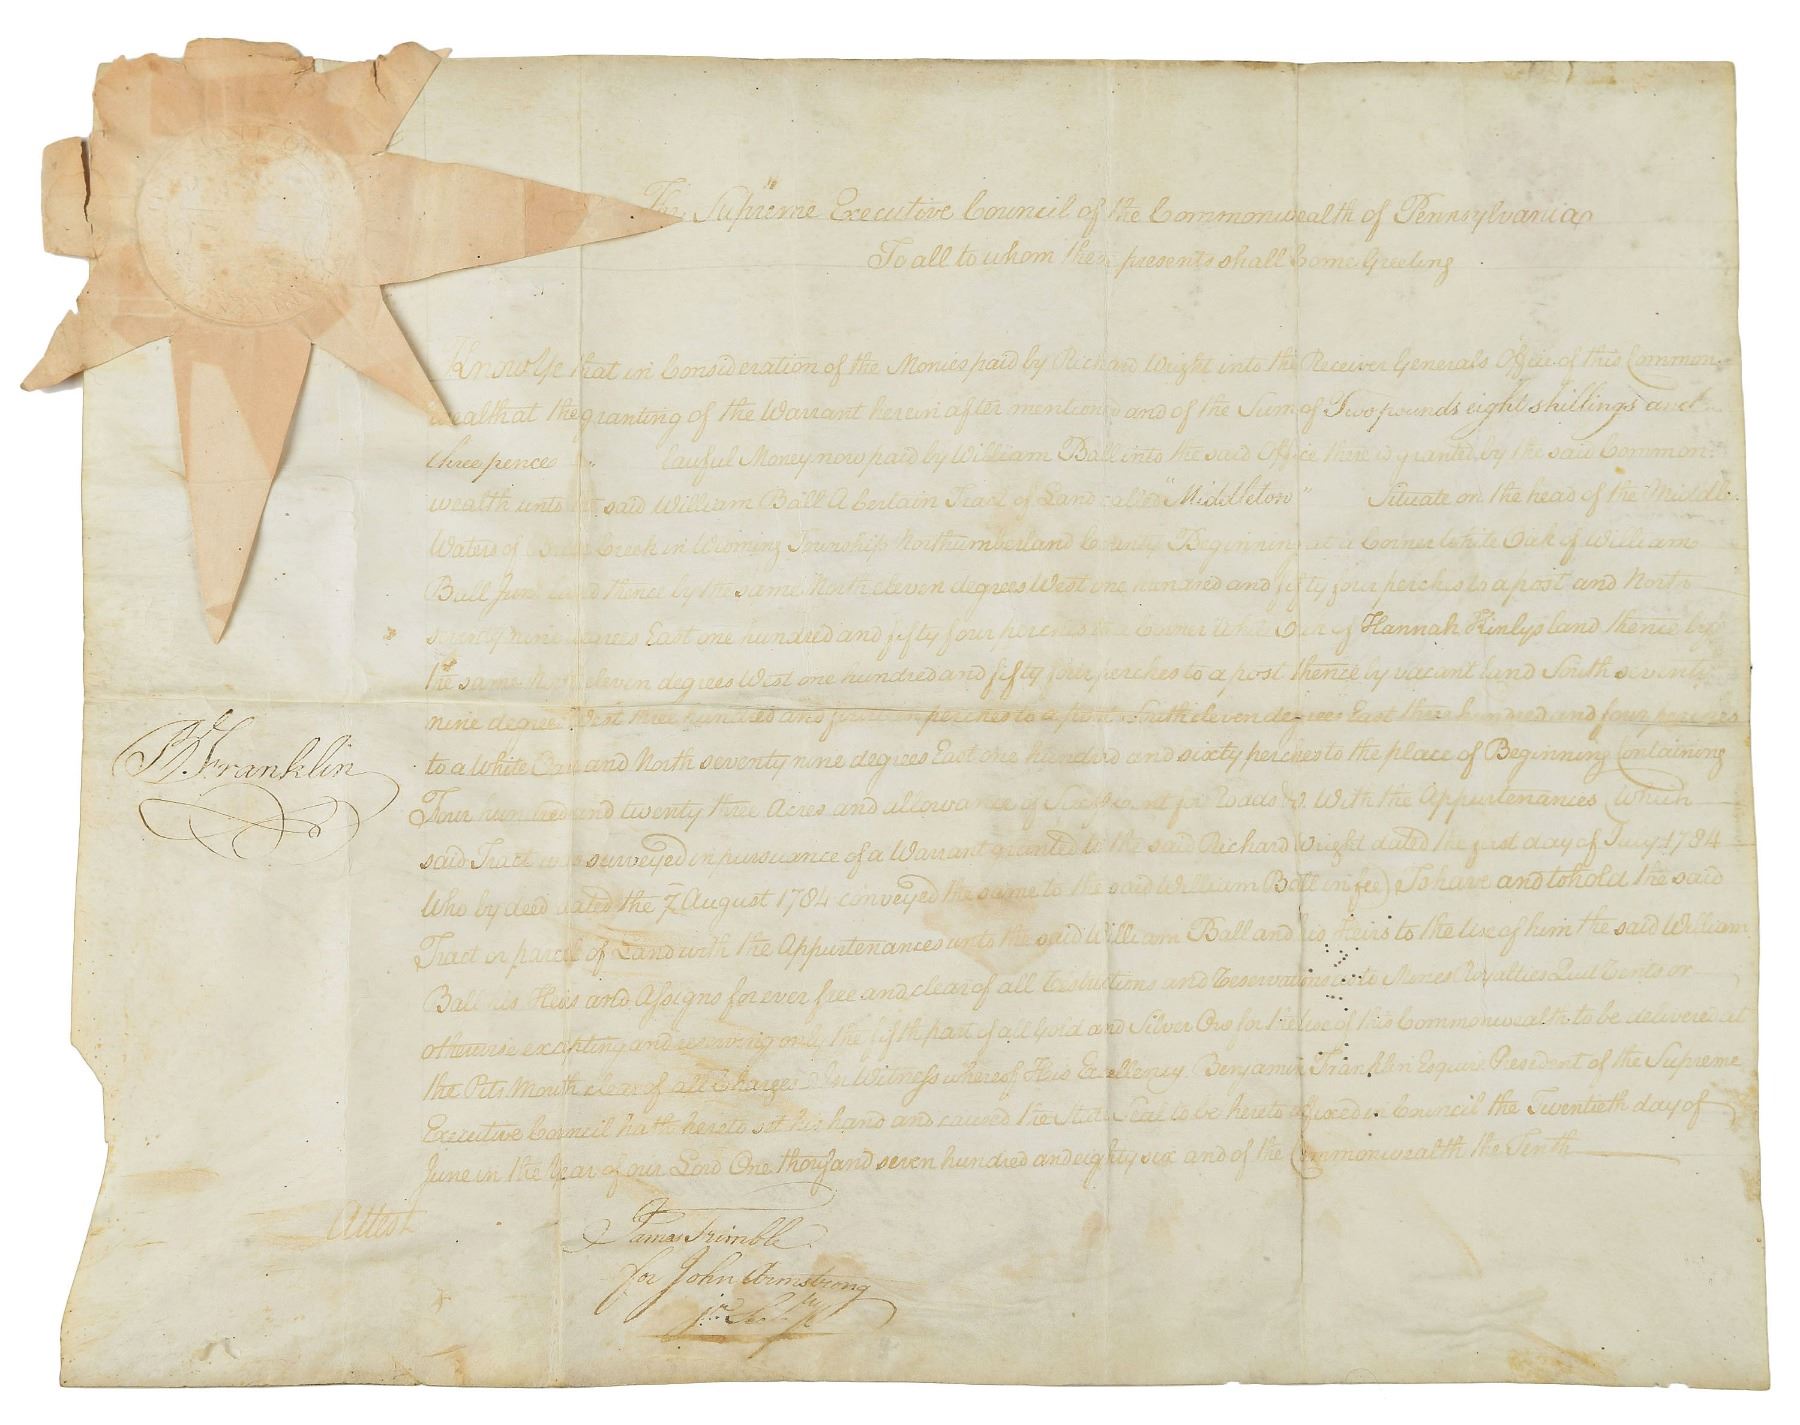 The Supreme Executive Council of the Commonwealth of Pennsylvania
To all to whom these presents shall Come Greeting
Know Ye that in Consideration of the Monies paid by Richard Wright into the Receiver Generals Office of this Common-
wealth at the granting of the Warrant herein after mentioned and of the Sum of Two pounds eight shillings and
three pence lawful Money now paid by William Ball into the said Office there is granted by the said Common-
wealth unto the said William Ball A Certain Tract of Land called "Middleton" Situate on the head of the Middle
Waters of Creek in Wioming Township Northumberland County Beginning at a Corner White Oak of William
Ball Junr land thence by the same North eleven degrees West one hundred and fifty four perches to a post and North
seventy nine degrees East one hundred and fifty four perches to a Corner White Oak of Hannah Kinlys land thence by
the same North eleven degrees West one hundred and fifty four perches to a post thence by vacant land South seventy
nine degrees West three hundred and perches to a post South eleven degrees East three hundred and four perches
to a White Oak and North seventy nine degrees East one hundred and sixty perches to the place of Beginning Containing
Four hundred and twenty three Acres and allowance of Six pr Cent for Roads &c. With the Appurtenances (Which
said Tract was surveyed in pursuance of a Warrant granted to the said Richard Wright dated the day of July 1784
Who by deed dated the 7 August 1784 conveyed the same to the said William Ball in fee) To have and to hold the said
Tract or parcel of Land with the Appurtenances unto the said William Ball and his Heirs to the Use of him the said William
Ball his Heirs and Assigns for ever free and clear of all Restrictions and Reservations as to Mines Royalties Quit Rents or
otherwise excepting and reserving only the fifth part of all Gold and Silver Ore for the Use of this Commonwealth to be delivered at
the Pits Mouth clear of all Charges In Witness whereof His Excellency Benjamin Franklin Esquire President of the Supreme
Executive Council hath hereto set his hand and caused the State Seal to be hereto affixed in Council the Twentieth day of
June in the Year of our Lord One thousand seven hundred and eighty six and of the Commonwealth the Tenth
B. Franklin
Attest
James Trimble
for John Armstrong
jr. Secry